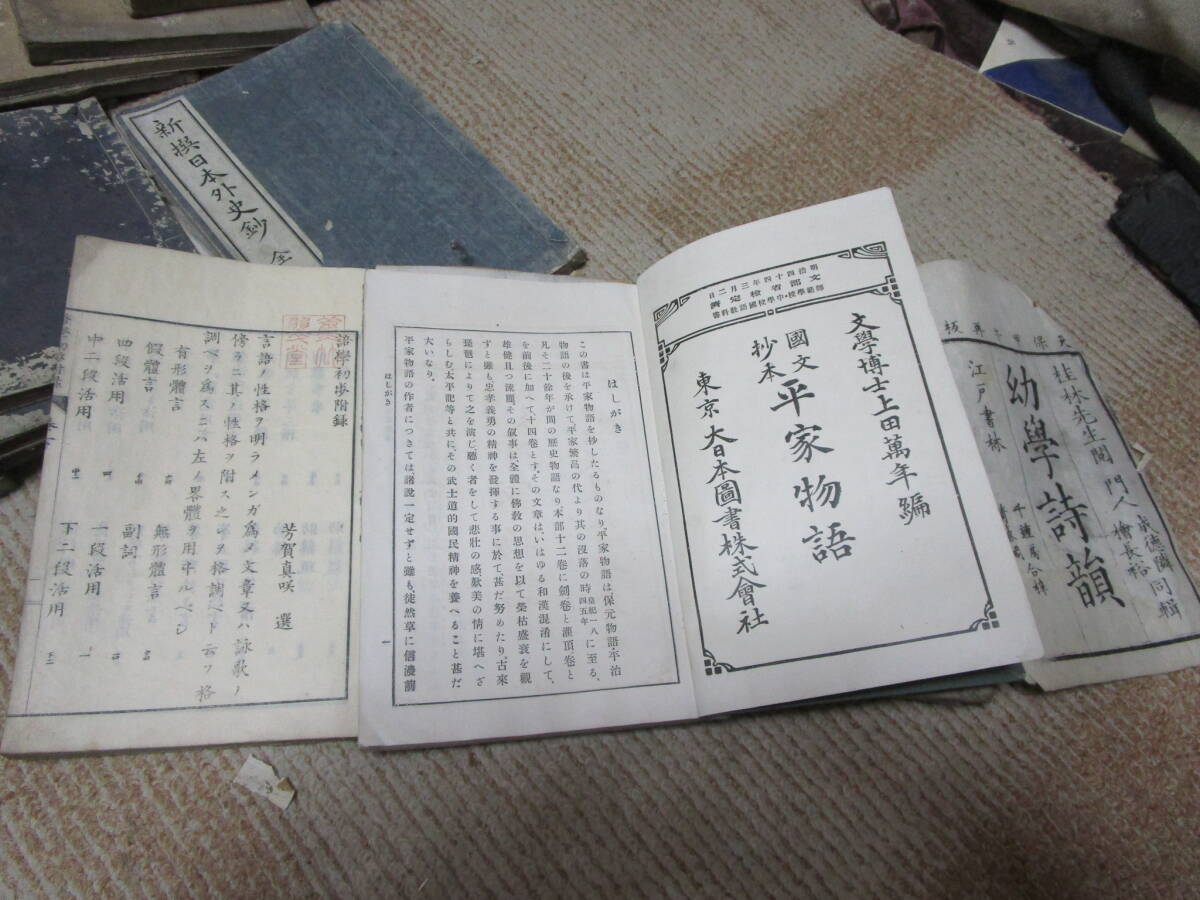 新撰日本外史鈔 全
日二月三年四十四治明
濟定檢省部文
書科教語國校學中・校學範師
文學博士上田萬年編
國文
抄本
平家物語
東京大日本圖書株式會社
はしがき
この書は平家物語を抄したるものなり、平家物語は保元物語・平治
物語の後を承けて平家繁昌の代より其の沒落の時皇紀一八四五年に至る、
凡そ二十餘年が間の歷史物語なり、本部十二卷に劍卷と灌頂卷と
を前後に加へて、十四卷とす。その文章は、いはゆる和漢混淆にして、
雄健且つ流麗、その敍事は全體に佛教の思想を以て榮枯盛衰を觀
ずと雖も、忠孝義勇の精神を發揮する事に於て、甚だ努めたり。古來
琵琶により て之を演じ、聽く者をして悲壯の感、歎美の情に堪へざ
らしむ。太平記等と共に、その武士道的國民精神を養へること甚だ
大いなり。
平家物語の作者につきては、諸說一定せずと雖も、徒然草に信濃前
はしがき
一
語學初步附錄
芳賀真咲 選
言語ノ性格ヲ明ラメンガ爲メ文章又ハ詠歌ノ
傍ラニ其ノ性格ヲ附ス之レヲ格調ベト云フ格
調ベヲ爲スニハ左ノ畧體ヲ用ヰルベシ
有形體言
無形體言
假體言
副詞
四段活用
一段活用
中二段活用
下二段活用
桂林先生閲
門人
檜長裕
同輯
幼學詩韻
江戸書林